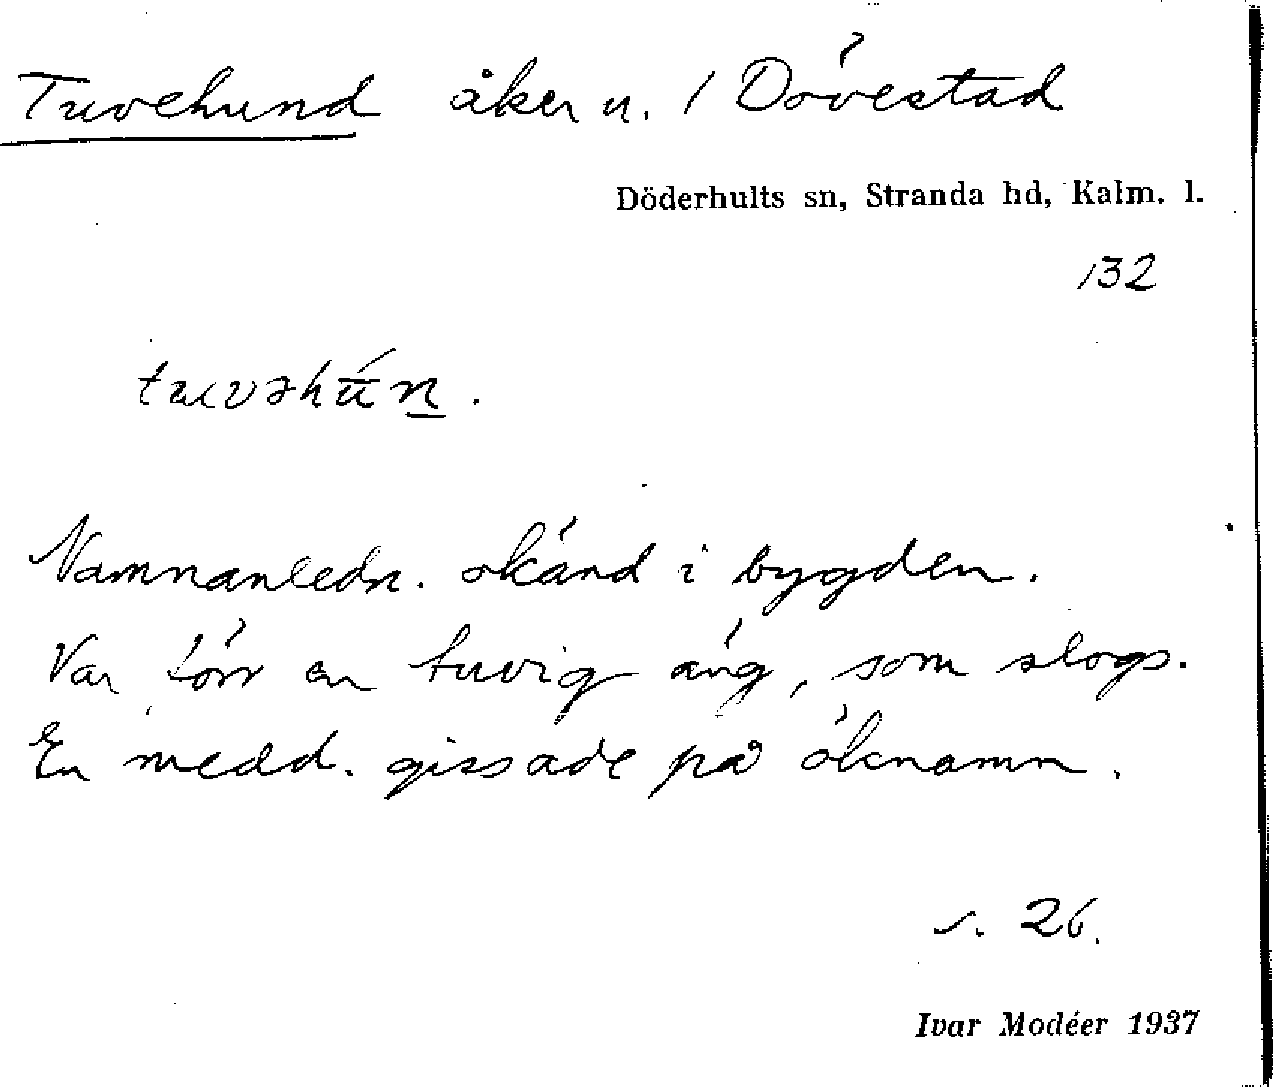 Tuvehund åker u. / Dövestad
Döderhults sn, Stranda hd, Kalm. l.
132
tuvəhūń.
Namnanledn. okänd i bygden.
Var förr en tuvig äng, som slogs.
En medd. gissade på öknamn.
s. 26.
Ivar Modéer 1937